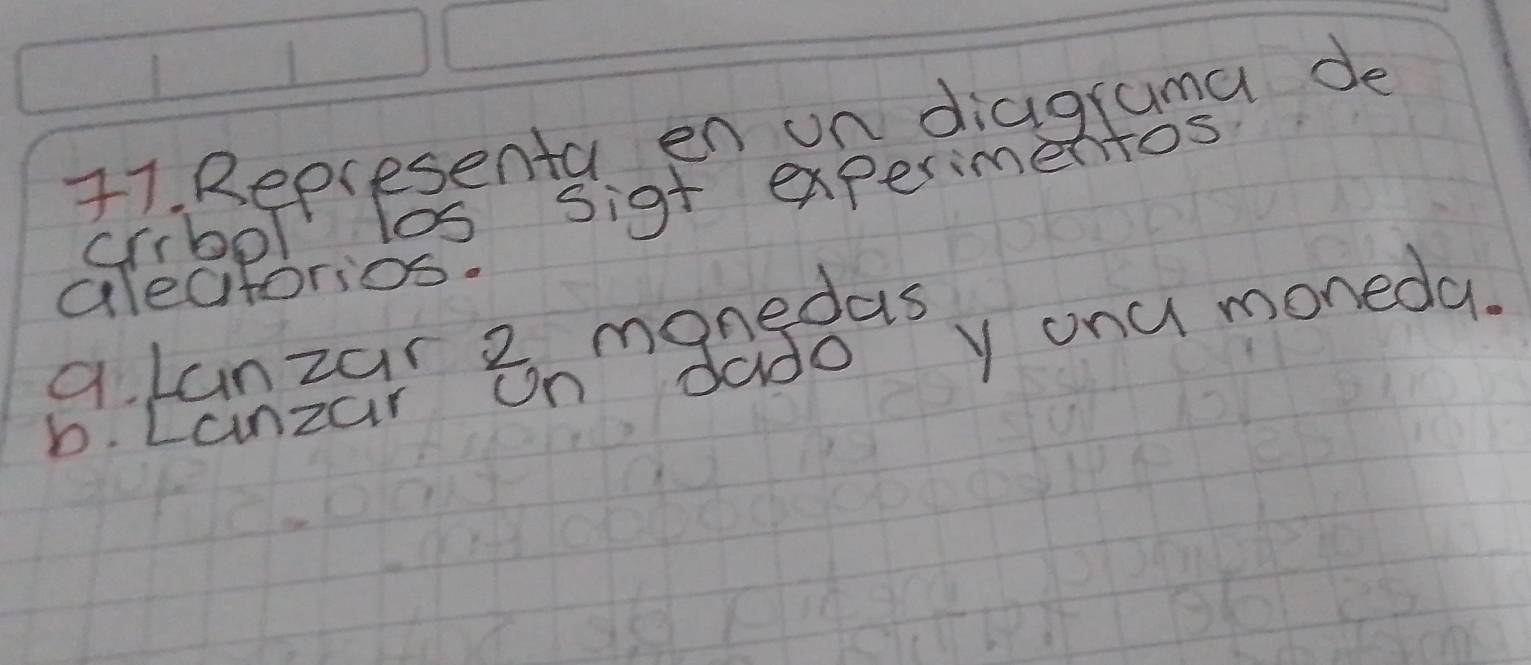 71. Representa en un diagrama de
arbol los sigt experimentos
aleatorios.
a. Lanzar 2 monedas
b. Lanzar un dado y una moneda.